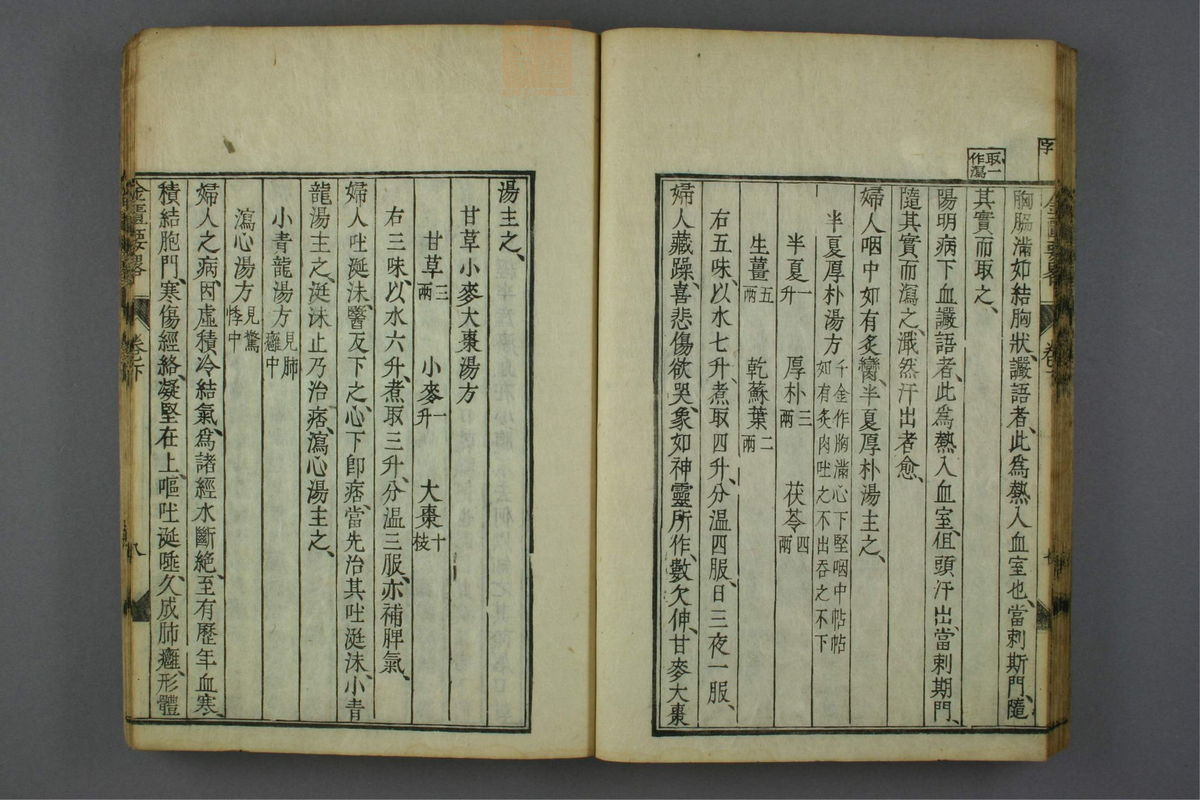 取一
作瀉
胸脇滿如結胸狀、讝語者、此爲熱入血室也、當刺期門、隨
其實而取之、
陽明病下血讝語者、此爲熱入血室、但頭汗出、當刺期門、
隨其實而瀉之、濈然汗出者愈、
婦人咽中如有炙臠、半夏厚朴湯主之、
半夏厚朴湯方 千金作胸滿心下堅咽中帖帖如有炙肉吐之不出吞之不下
半夏一升 厚朴三兩 茯苓四兩
生薑五兩 乾蘇葉二兩
右五味、以水七升、煮取四升、分溫四服、日三夜一服、
婦人藏躁、喜悲傷欲哭、象如神靈所作、數欠伸、甘麥大棗
金匱要畧 卷下
湯主之、
甘草小麥大棗湯方
甘草三兩 小麥一升 大棗十枚
右三味、以水六升、煮取三升、分溫三服、亦補脾氣、
婦人吐涎沫、醫反下之、心下卽痞、當先治其吐涎沫、小青
龍湯主之、涎沫止、乃治痞、瀉心湯主之、
小青龍湯方 見肺癰中
瀉心湯方 見驚悸中
婦人之病、因虛積冷結氣、爲諸經水斷絕、至有歷年、血寒
積結胞門、寒傷經絡、凝堅在上、嘔吐涎唾、久成肺癰、形體
金匱要畧 卷之下 八